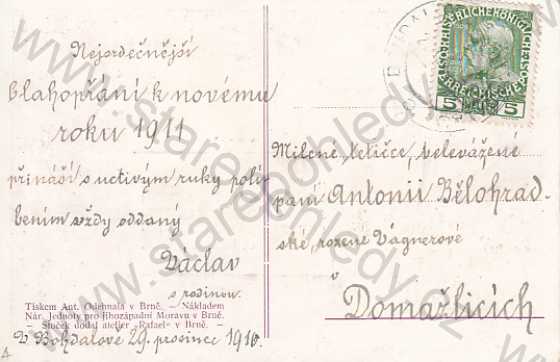 Nejsrdečnější
blahopřání k novému
roku 1911
přináší s uctivým ruky polí-
bením vždy oddaný
Václav
s rodinou.
Tiskem Ant. Odehnala v Brně. – Nákladem
Nár. Jednoty pro jihozápadní Moravu v Brně.
– Štoček dodal atelier »Rafael« v Brně. –
V Bohdalově 29. prosince 1910
Milené tetičce, velevážené
paní Antonii Bělohrad-
ské, rozené Vágnerové
v
Domažlicích
KAISERLICHE KÖNIGLICHE
ÖSTERREICHISCHE
5 5
www.starepohledy.cz